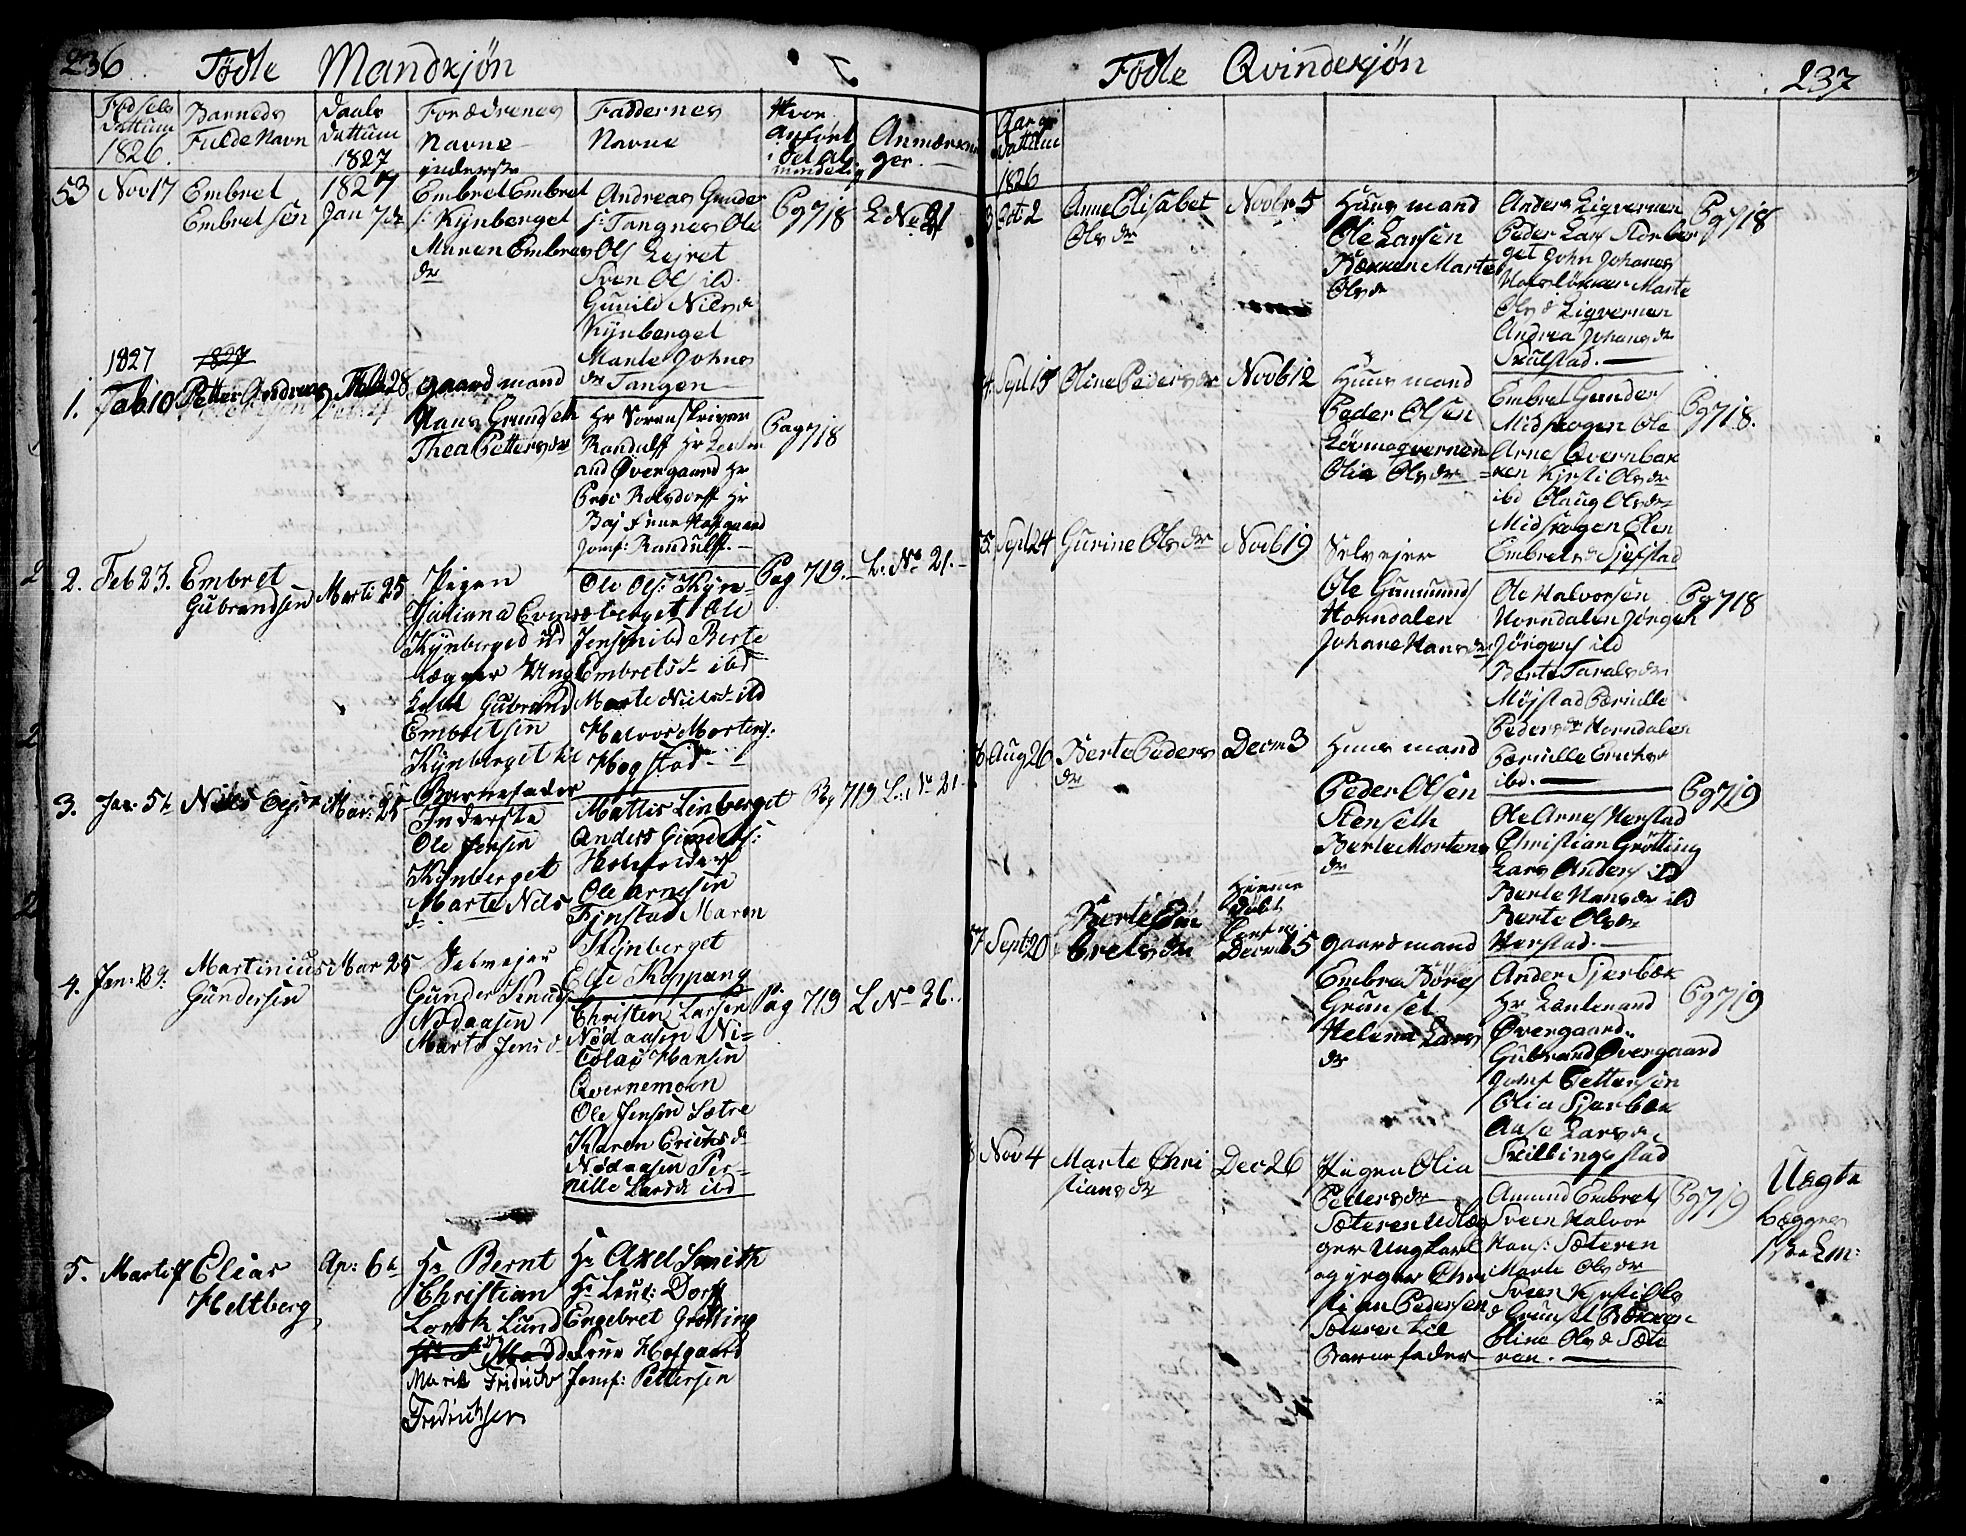 236 Fødte Mandkjøn
Fødsels Dattum 1826.
Barneds Fulde Navn
Daabs dattum 1827
Forældrenes Navne
Faddernes Navne
Hvor Anført i det Al mindelig
53 Nov 17 Embret Embretsen
1827 Jan 7de
Embret Embret
s: Kynberget
Maren Embres
dr
Andreas Gunder
s: Tangnes Ole
Ols Lejret
Sven Ols ibd.
Gunild Nilsd
Kynberget
Marte Johns
dr Tangen
Pg 718
L No 21
1827
1. Feb 10 Petter Andreas
28 gaardmand
Hans Grundseth
Thea Petters dr
Hr Sorenskriver
Randulff Hr Leuten
and Øvergaard Hr
Proc Rolsdorff Hr
Baj Frue Hofgaard
Jomf: Randulff.
Pag 718
2. Feb 23. Embret
Gubrandsen
Marti 25
Pigen
Juliana Evens
Kynberged
lægger Ung
karl Gubrand
Embretsen
Kynberget til
Barnefader
Ole Ols: Kyn-
berget Ole
Jensen ibd Berte
Embretsd ibd
Marte Nielsd ibd
Halvor Mortens:
Hogstad
Pag 719.
L. No 21.
3. Jan: 5t Nils Olsen Mar: 25
Inderste
Ole Jensen
Kynberget
Marte Nils
d.
Mattis Linberget
Anders Gunders:
Ole Arnesen
Finstad Maren
Kynberget
Else Koppang
Pg 719 L: No 21
4. Jan: 29: Martinius Gundersen
Mar 25
Selvejer
Gunder Knuds
Nødaasen
Marte Jensd
Christen Larsen
Nødaasen Ni-
colai Hansen
Qvernemoen
Ole Jensen Sætre
Karen Ericksd
Nødaasen Per-
nille Larsd ibd
Pag 719 L No 36.
5. Marti Elias
Heltberg
Ap: 6t
Hr Bernt
Christian
Lund
Marie Fridricke
Fredricksen
Hr Axel Smith
Hr Leut: Dorff
Engebret Grøtting
Frue Hofgaard
Jomf: Pettersen
Fødte Qvindekjøn 237
Aar og Dattum
1826
Oct 2 Anne Elisabet
Ols dr
Novbr 5
Huusmand
Ole Larsen
Bækken Marte
Olsd
Anders Ligvernen
Peder Lars Storber
get John Johans
Marte
Olsd Ligvernen
Andrea Johansd
Skulstad.
Pg 718
4. Sept 15 Oline Peders dr Novb 12
Huusmand
Peder Olsen
Løvneqvernen
Olia Olsdr
Embret Gunders
Midskogen Ole
Arne Qvernbak
ken Kirsti Olsdr
ibd Olaug Olsdr
Midskogen Elen
Embretsd Sjefstad
Pg 718.
5. Sept 24 Gurine Olsdr Novb 19
Selvejer
Ole Gunmunds
Horndalen
Johane Hansdr
Ole Halvorsen
Horndalen Jørgen
Jørgens ibd
Berte Taralsdr
Møjstad Pernille
Pedersdr Horndalen
Pernille Ericks
ibd.
Pg 718
6 Aug 26 Berte Peders
dr
Decm 3
Huusmand
Peder Olsen
Stenseth
Berte Mortens
dr
Ole Arnes Herstad
Christian Grøtting
Lars Anders ibd
Berte Hansdr ibd
Berte Olsdr
Herstad.
Pg 719
7 Sept 20 Berte Em
bretsdr
Hjemme
døbt
Decm 15
gaardmand
Embre Børes
Grunset
Helena Lars
dr
Ander Sjerbæk
Hr Leutenand
Øvergaard.
Gubrand Øvergaard
Jomf Pettersen
Olia Sjerbæk
Aase Larsdr
Skillingstad
Pg 719
8 Nov 4 Marte Chri
stiansdr
Dec 26
Pigen Olia
Pedersdr
Sæteren Udlæg
ger Ungkarl
og jæger Chri
stian Pedersen
Sæteren til
Barnefader
Amund Embrets
Sveen Halvor
Hans: Sæteren
Marte Olsdr
Sveen Kirsti Ols
d Grunset Bækken
Oline Olsd Sæte
ren.
Pg 719
Uægte
begges
1ste Lm: